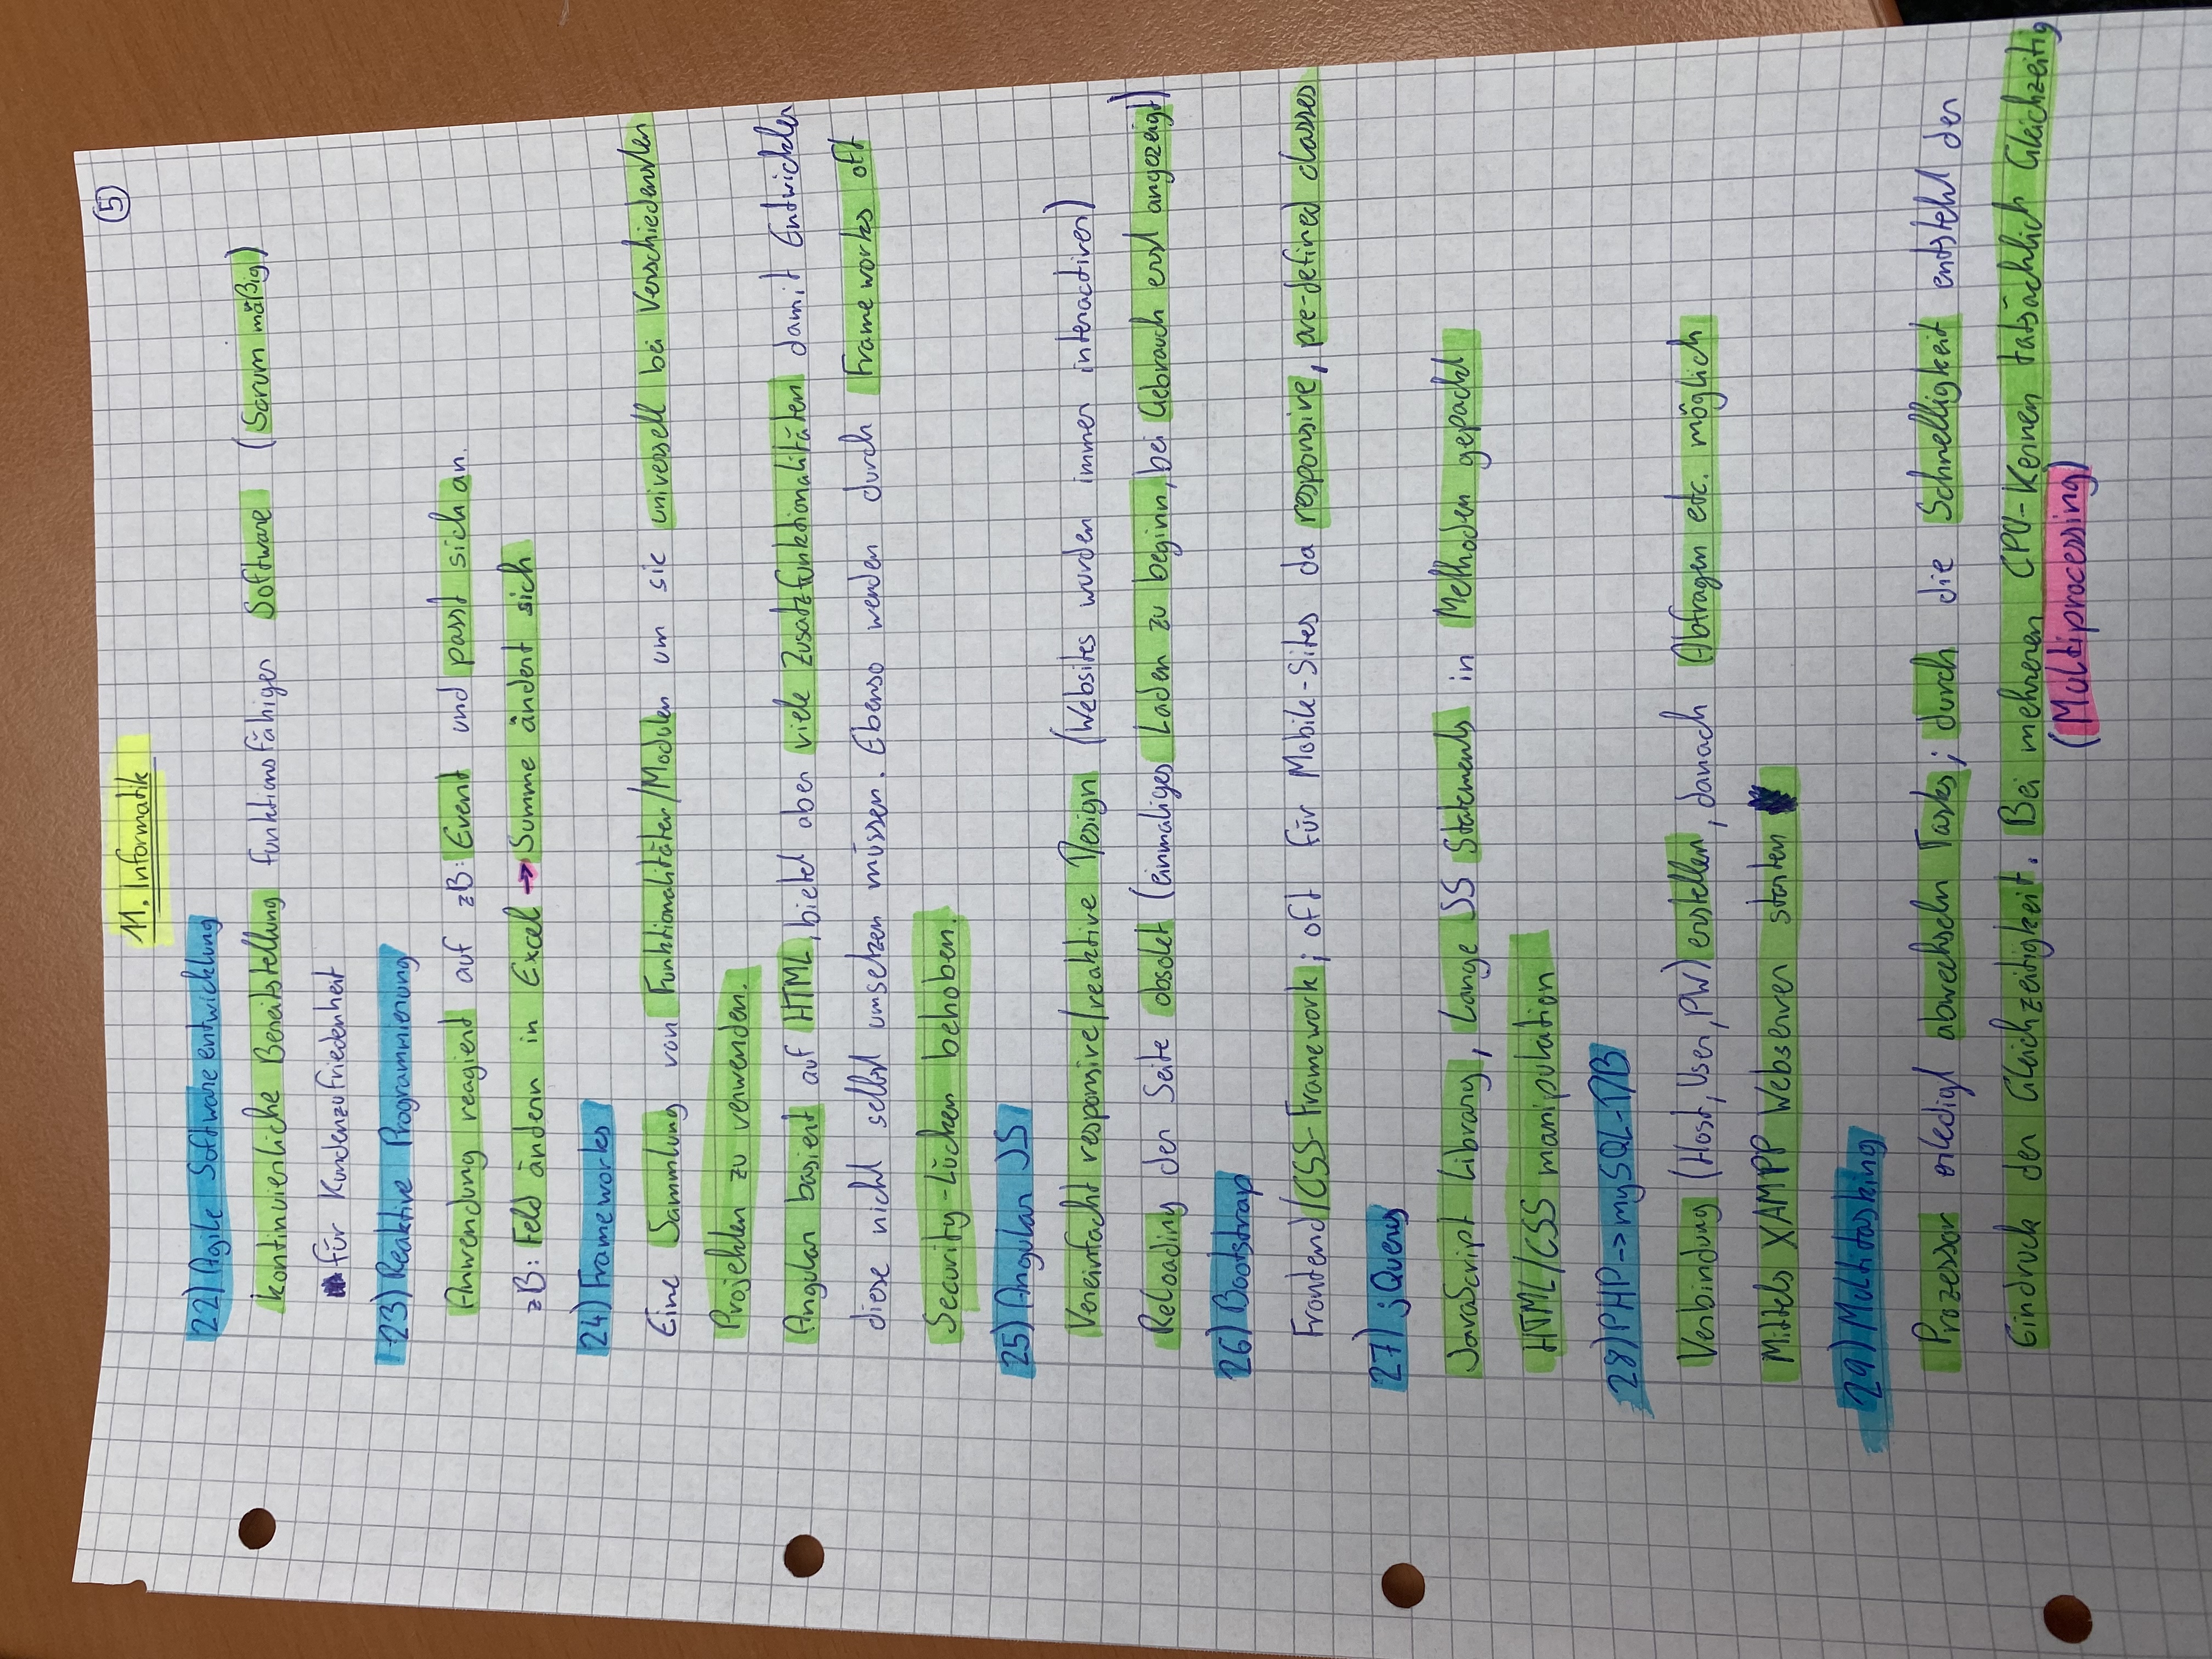 5
11. Informatik
22) Agile Softwareentwicklung
kontinuierliche Bereitstellung funktionsfähiger Software (Scrum mäßig)
für Kundenzufriedenheit
23) Reaktive Programmierung
Anwendung reagiert auf zB: Event und passt sich an.
zB: Feld ändern in Excel → Summe ändert sich
24) Frameworks
Eine Sammlung von Funktionalitäten/Modulen um sie universell bei Verschiedensten
Projekten zu verwenden.
Angular basiert auf HTML, bietet aber viele Zusatzfunktionalitäten damit Entwickler
diese nicht selbst umsetzen müssen. Ebenso werden durch Frameworks oft
Security-Lücken behoben.
25) Angular JS
Vereinfacht responsive/reaktive Design (Websites wurden immer interactiver)
Reloading der Seite obsolet (einmaliges Laden zu beginn, bei Gebrauch erst angezeigt)
26) Bootstrap
Frontend/CSS-Framework; oft für Mobile-Sites da responsive, pre-defined classes
27) jQuery
JavaScript Library, Lange JS Statements in Methoden gepackt
HTML/CSS manipulation
28) PHP -> mySQL-DB
Verbindung (Host, User, PW) erstellen, danach Abfragen etc. möglich
Mittels XAMPP Webserver starten
29) Multitasking
Prozessor erledigt abwechseln Tasks; durch die Schnelligkeit entsteht der
Eindruck der Gleichzeitigkeit. Bei mehreren CPU-Kernen tatsächlich Gleichzeitig
(Multiprocessing)